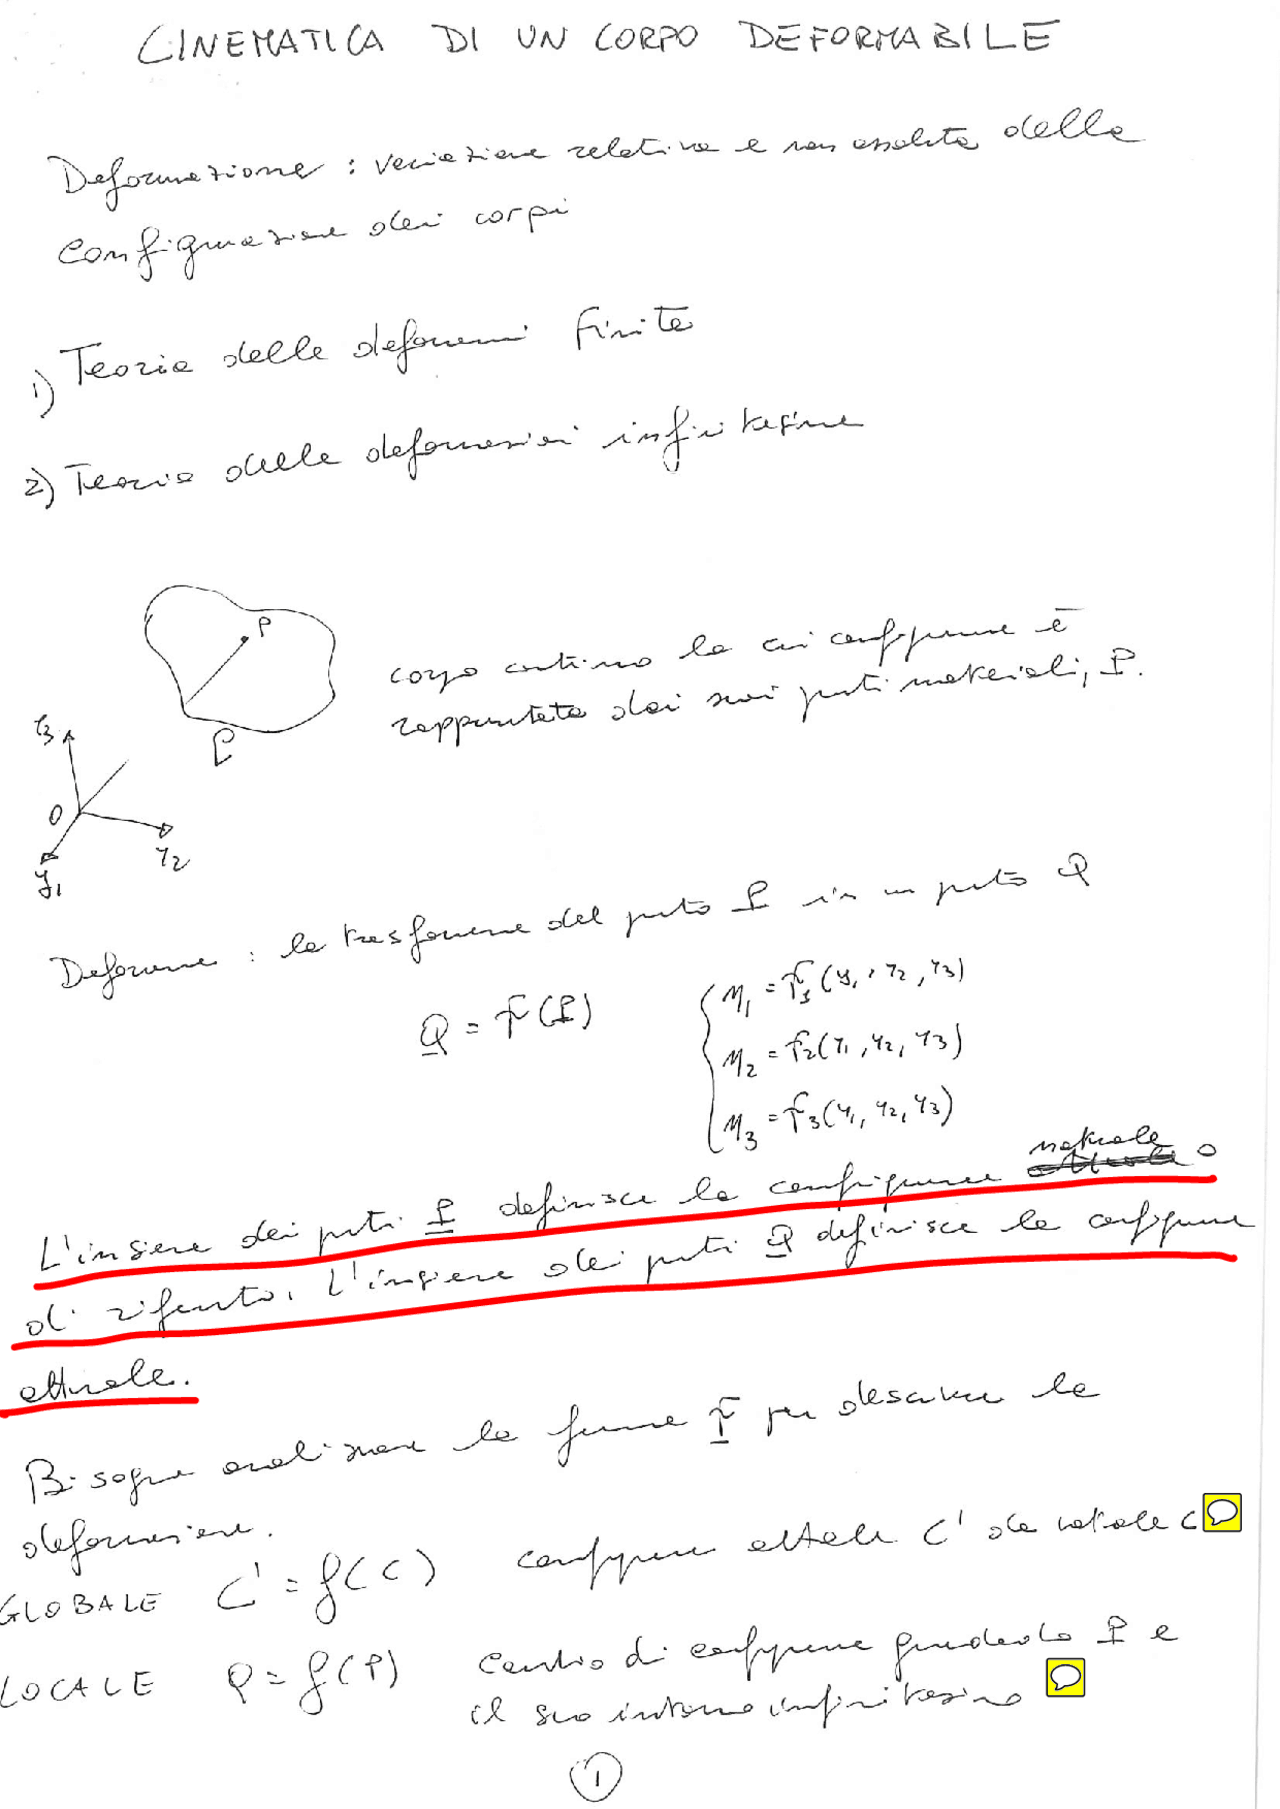 CINEMATICA DI UN CORPO DEFORMABILE
Deformazione : variazione relativa e non assoluta della
configurazione dei corpi
1) Teoria delle deformazioni finite
2) Teoria delle deformazioni infinitesime
P
C
y3
O
y2
y1
corpo continuo la cui configurazione è
rappresentata dai suoi punti materiali, P.
Deformazione : la trasformazione del punto P in un punto Q
Q = f(P)
η1 = f1(y1, y2, y3)
η2 = f2(y1, y2, y3)
η3 = f3(y1, y2, y3)
naturale
L'insieme dei punti P definisce la configurazione o
di riferimento. L'insieme dei punti Q definisce la configurazione
attuale.
Bisogna analizzare la funzione f per descrivere la
deformazione.
GLOBALE C' = f(C) configurazione attuale C' da naturale C
LOCALE Q = f(P) cambio di configurazione guardando P e
il suo intorno infinitesimo
1